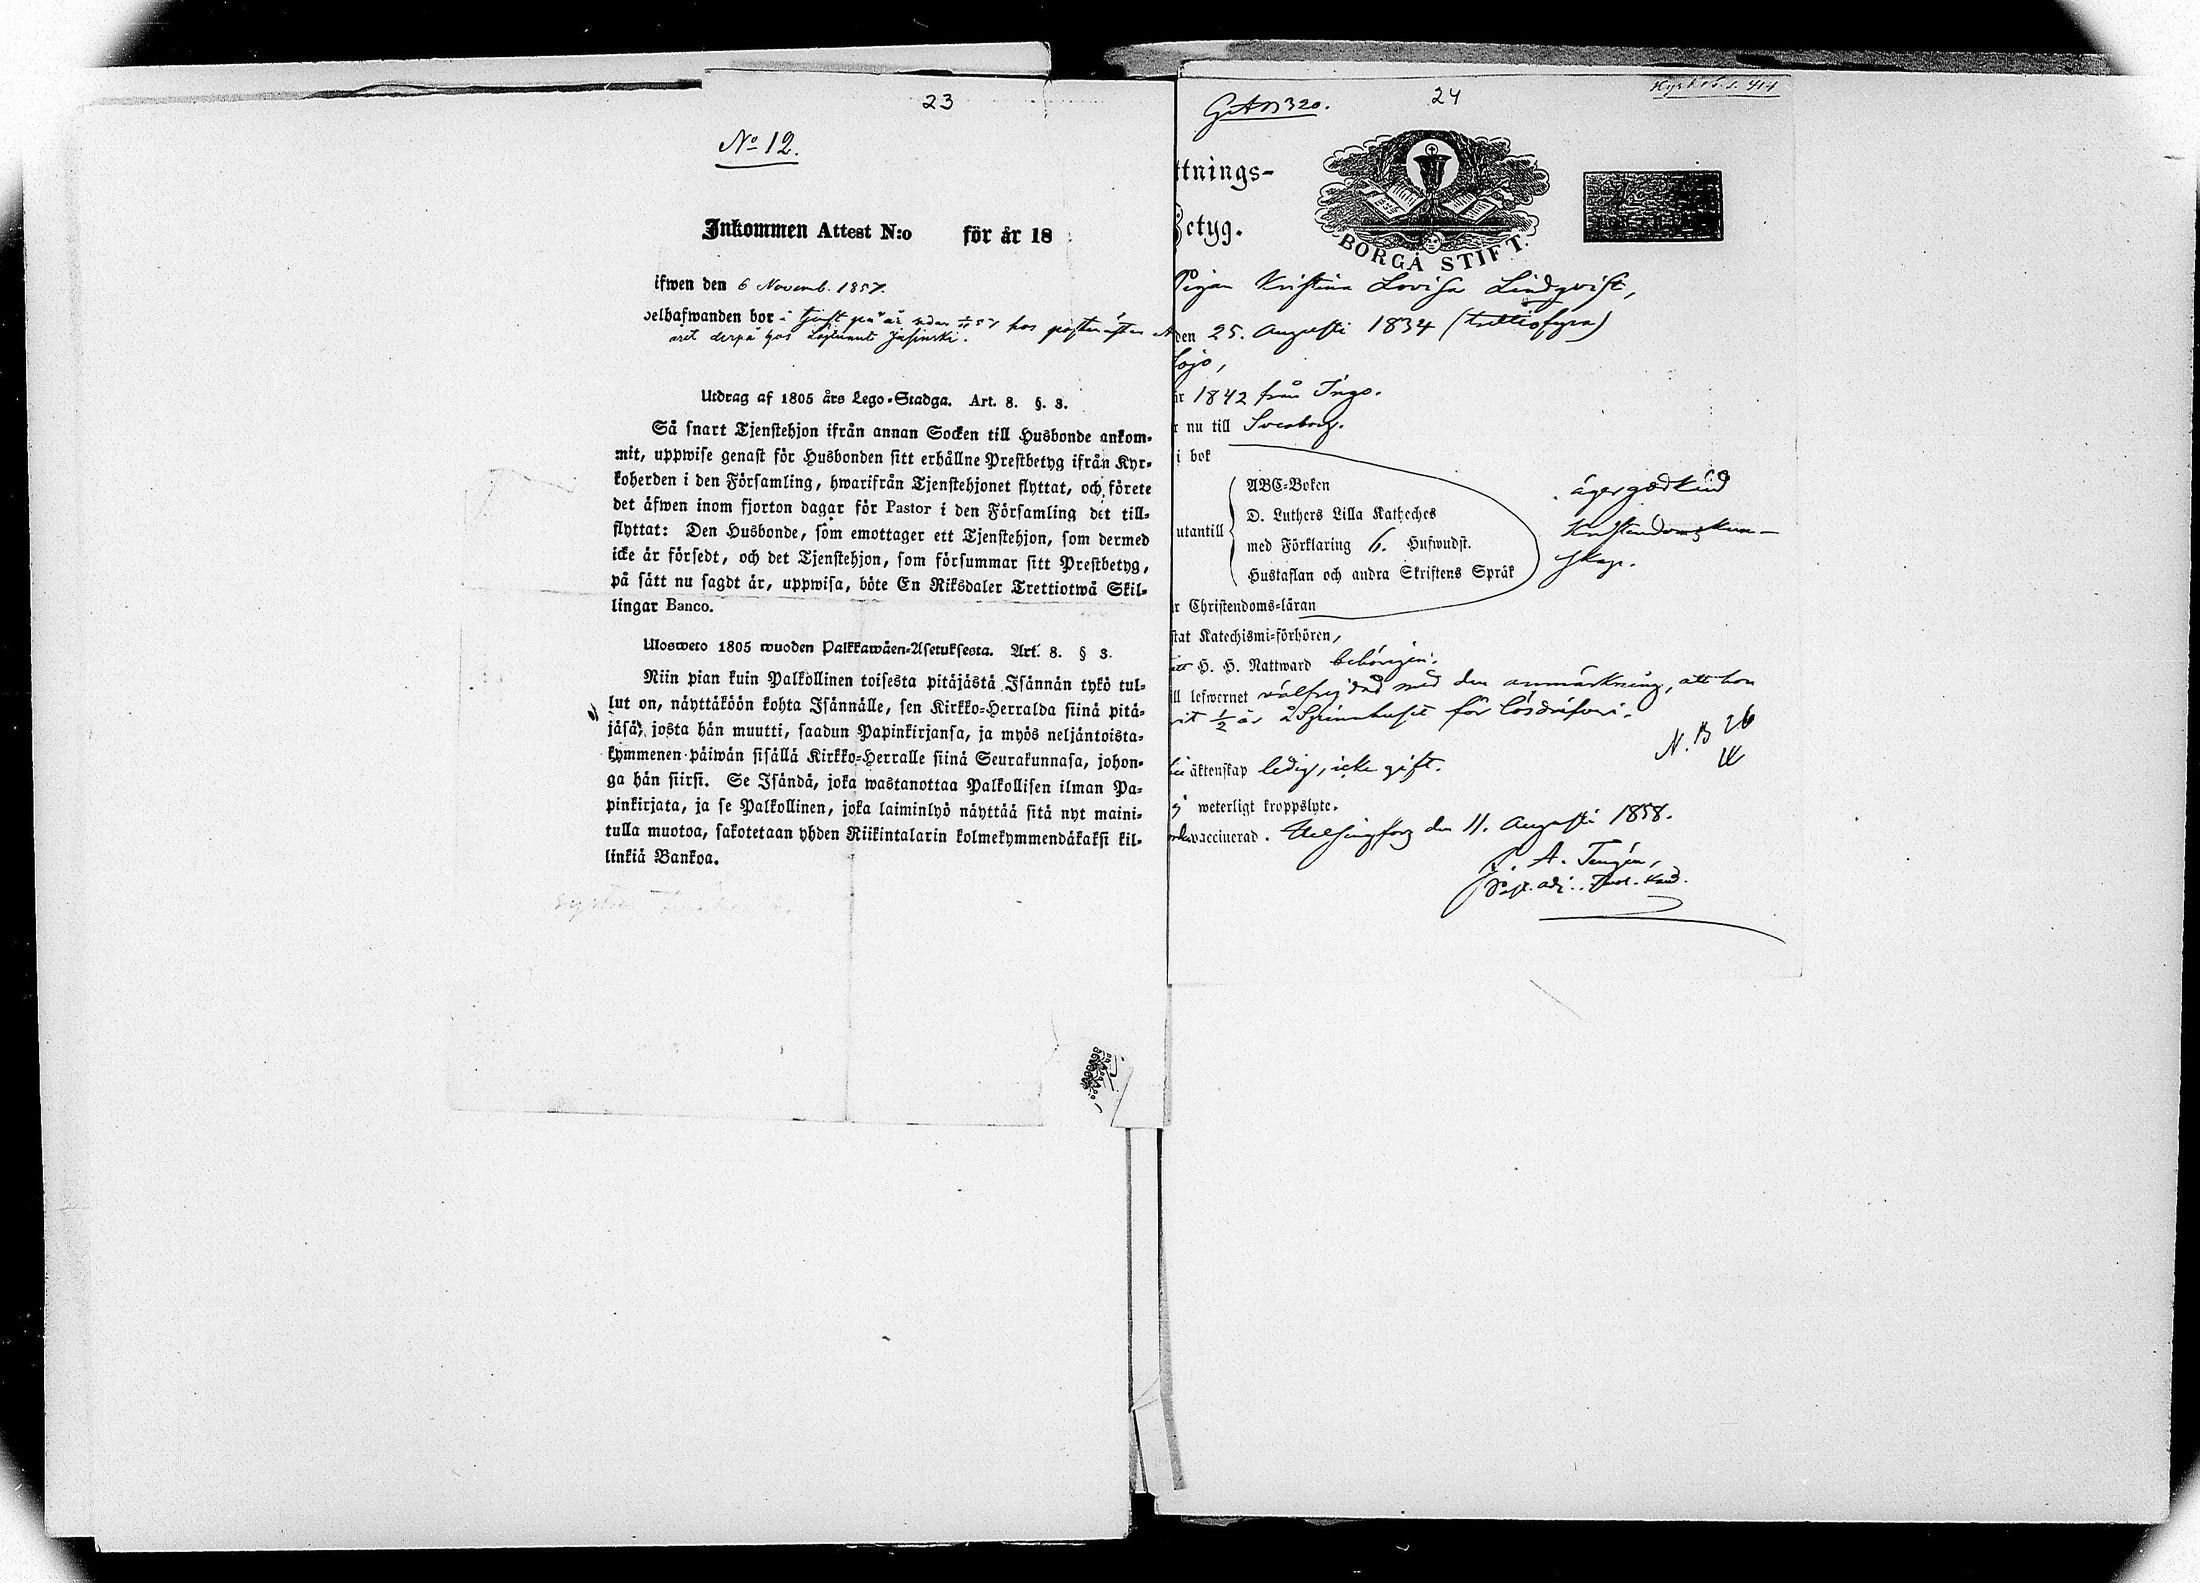 23
No 12.
Inkommen Attest N:o för år 18
ifwen den 6 Novemb. 1857.
velhafwanden bor i tjenst på år sedan hos
året derpå hos Löjtnant Jasinski.
Utdrag af 1805 års Lego-Stadga. Art. 8. §. 3.
Så snart Tjenstehjon ifrån annan Socken till Husbonde ankom-
mit, uppwise genast för Husbonden sitt erhållne Prestbetyg ifrån Kyr-
koherden i den Församling, hwarifrån Tjenstehjonet flyttat, och förete
det äfwen inom fjorton dagar för Pastor i den Församling det till-
flyttat: Den Husbonde, som emottager ett Tjenstehjon, som dermed
icke är försedt, och det Tjenstehjon, som försummar sitt Prestbetyg,
på sätt nu sagdt är, uppwisa, böte En Riksdaler Trettiotwå Skil-
lingar Banco.
Ulosweto 1805 wuoden Palkkawäen-Asetuksesta. Art. 8. § 3.
Niin pian kuin Palkollinen toisesta pitäjästä Isännän tykö tul-
lut on, näyttäköön kohta Isännälle, sen Kirkko-Herralda siinä pitä-
jäsä, josta hän muutti, saadun Papinkirjansa, ja myös neljäntoista-
kymmenen päiwän sisällä Kirkko-Herralle siinä Seurakunnasa, johon-
ga hän siirsi. Se Isändä, joka wastanottaa Palkollisen ilman Pa-
pinkirjata, ja se Palkollinen, joka laiminlyö näyttää sitä nyt maini-
tulla muotoa, sakotetaan yhden Riikintalarin kolmekymmendäkaksi kil-
linkiä Bankoa.
24
ttnings-
Betyg.
BORGÅ STIFT.
Pigan Kristina Lovisa Lindqvist,
den 25. Augusti 1834 (trettiofyra)
Lojo,
år 1842 från Ingo.
r nu till Sveaborg.
i bok
utantill
ABC-Boken
D. Luthers Lilla Katheches
med Förklaring 6. Hufwudst.
Hustaflan och andra Skriftens Språk
äger godkänd
Kristendomskun-
skap.
r Christendoms-läran
stat Katechismi-förhören,
H. H. Nattward behörigen.
ill lefwernet välfrejdad med den anmärkning, att hon
rit 1/2 år å Spinnhuset för lösdrifveri.
N. B 26
äktenskap ledig, icke gift.
weterligt kroppslyte.
vaccinerad. Helsingfors den 11. Augusti 1858.